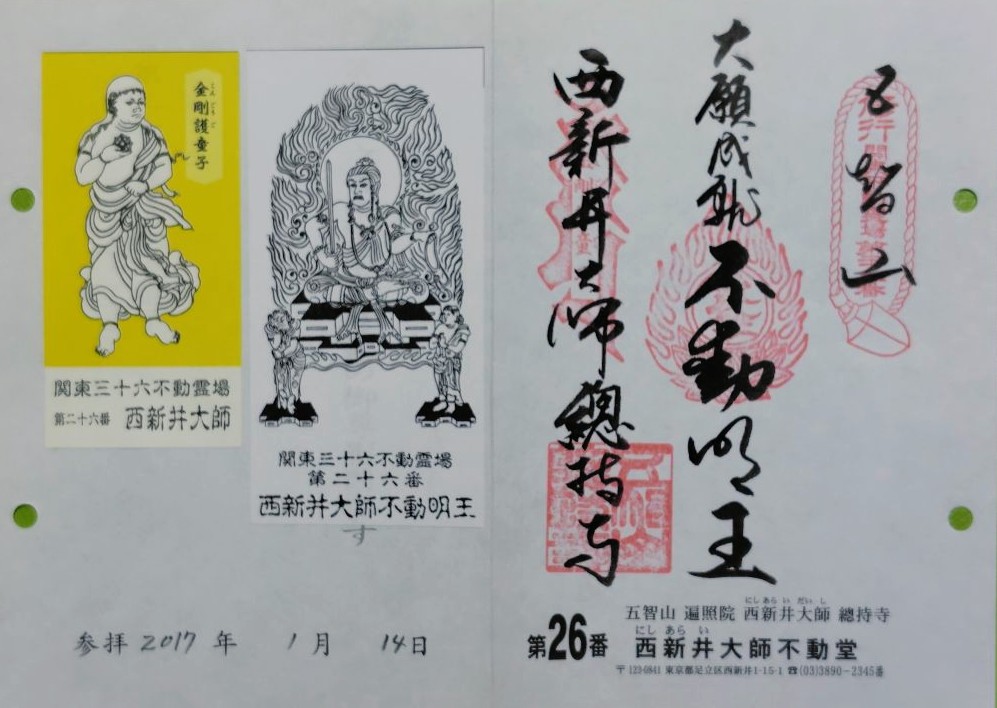 五智山
大願成就 不動明王
西新井大師 總持寺
五智山 遍照院 西新井大師 總持寺
にしあらいだいし
第26番
にしあらい
西新井大師不動堂
〒123-0841 東京都足立区西新井1-15-1 ☎(03)3890-2345番
金剛護童子
こんごうご
関東三十六不動霊場
第二十六番 西新井大師
関東三十六不動霊場
第二十六番
西新井大師不動明王
す
参拝 2017 年 1 月 14 日